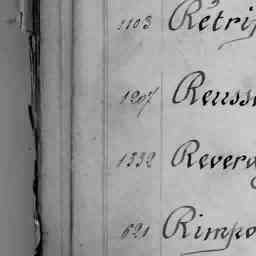 1103 Rétrip
1207 Reuss
1332 Rever
621 Rimpo